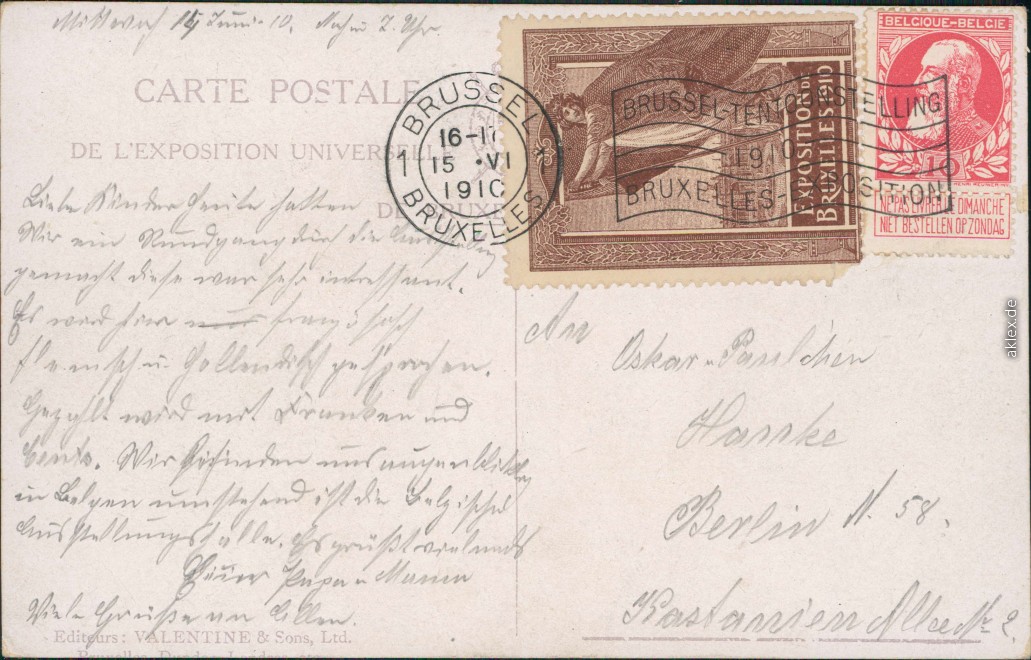 Mittwoch 15 Juni. 10. Nachm 2. Uhr.
CARTE POSTALE
DE L'EXPOSITION UNIVERSELLE
DE BRUXE
BRUSSEL
16-17
1 15 ·VI
1910
BRUXELLES
EXPOSITION DE
BRUXELLES 1910
BRUSSEL-TENTOONSTELLING
1910
BRUXELLES-EXPOSITION
BELGIQUE-BELGIE
10
NE PAS LIVRER LE DIMANCHE
NIET BESTELLEN OP ZONDAG
Liebe Kinder heute hatten
Wir ein Rundgang durch die Ausstellung
gemacht diese war sehr interessant.
Es wird hier französisch
flemisch u. Hollendisch gesprochen.
Gezahlt wird mit Franken und
Cents. Wir befinden uns augenblicklich
in Belgien umstehend ist die Belgische
Ausstellungshalle. Es grüßt vielmals
Euer Papa u Mama
Viele Grüße an Allen.
An
Oskar u Paulchen
Harrke
Berlin N. 58.
Kastanien Allee Nr 2.
Editeurs: VALENTINE & Sons, Ltd.
Bruxelles, Dundee, Londres, etc.
aklex.de